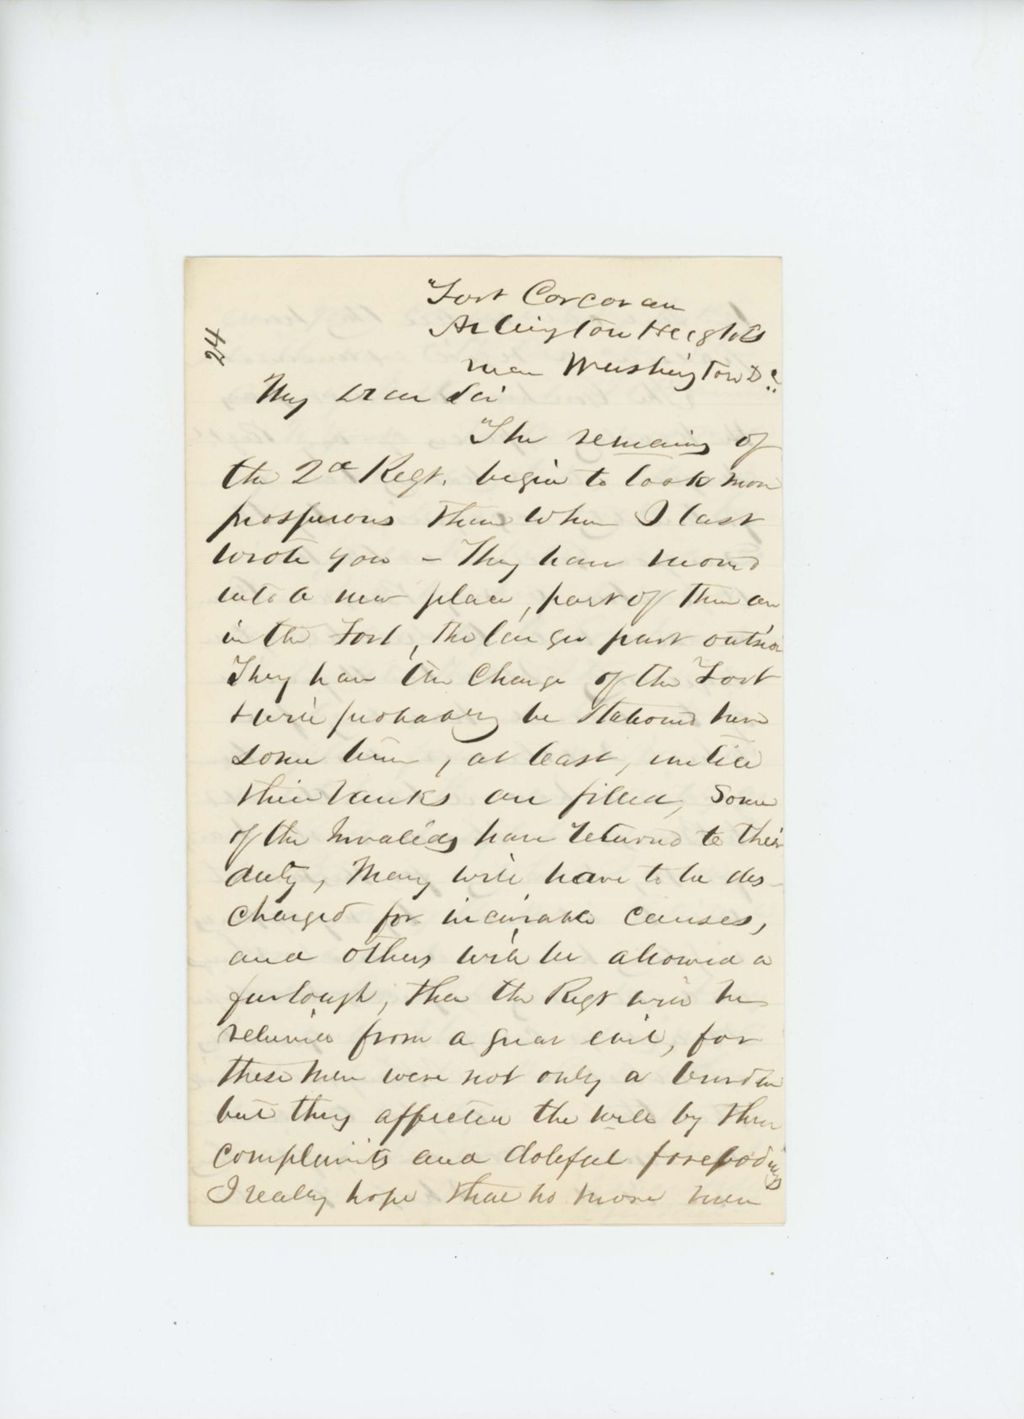 24
Fort Corcoran
Arlington Heights
near Washington D.C.
My Dear Sir
The remains of
the 2d Regt. begin to look more
prosperous than when I last
wrote you - They have moved
into a new place, part of them are
in the Fort, the larger part outside
They have the Charge of the Fort
& will probably be stationed here
some time, at least, until
their ranks are filled, Some
of the Invalids have returned to their
duty, Many will have to be dis-
charged for incurable causes,
and others will be allowed a
furlough, then the Regt will be
relieved from a great evil, for
these men were not only a burden
but they affected the well by their
complaints and doleful forebodings
I really hope that no more men